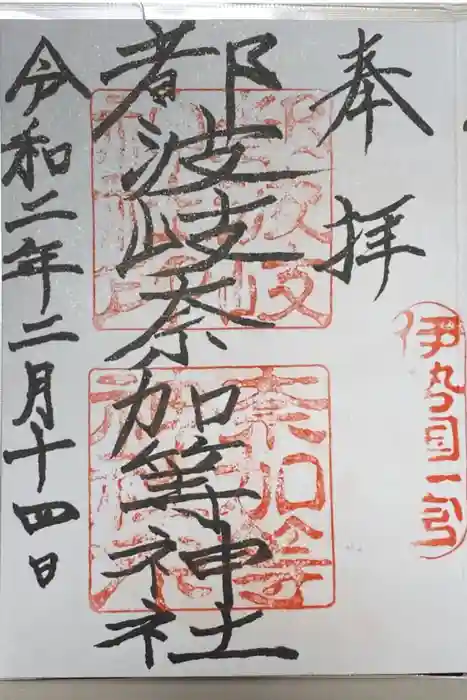 奉拝
伊勢国一宮
都波岐奈加等神社
令和二年二月十四日